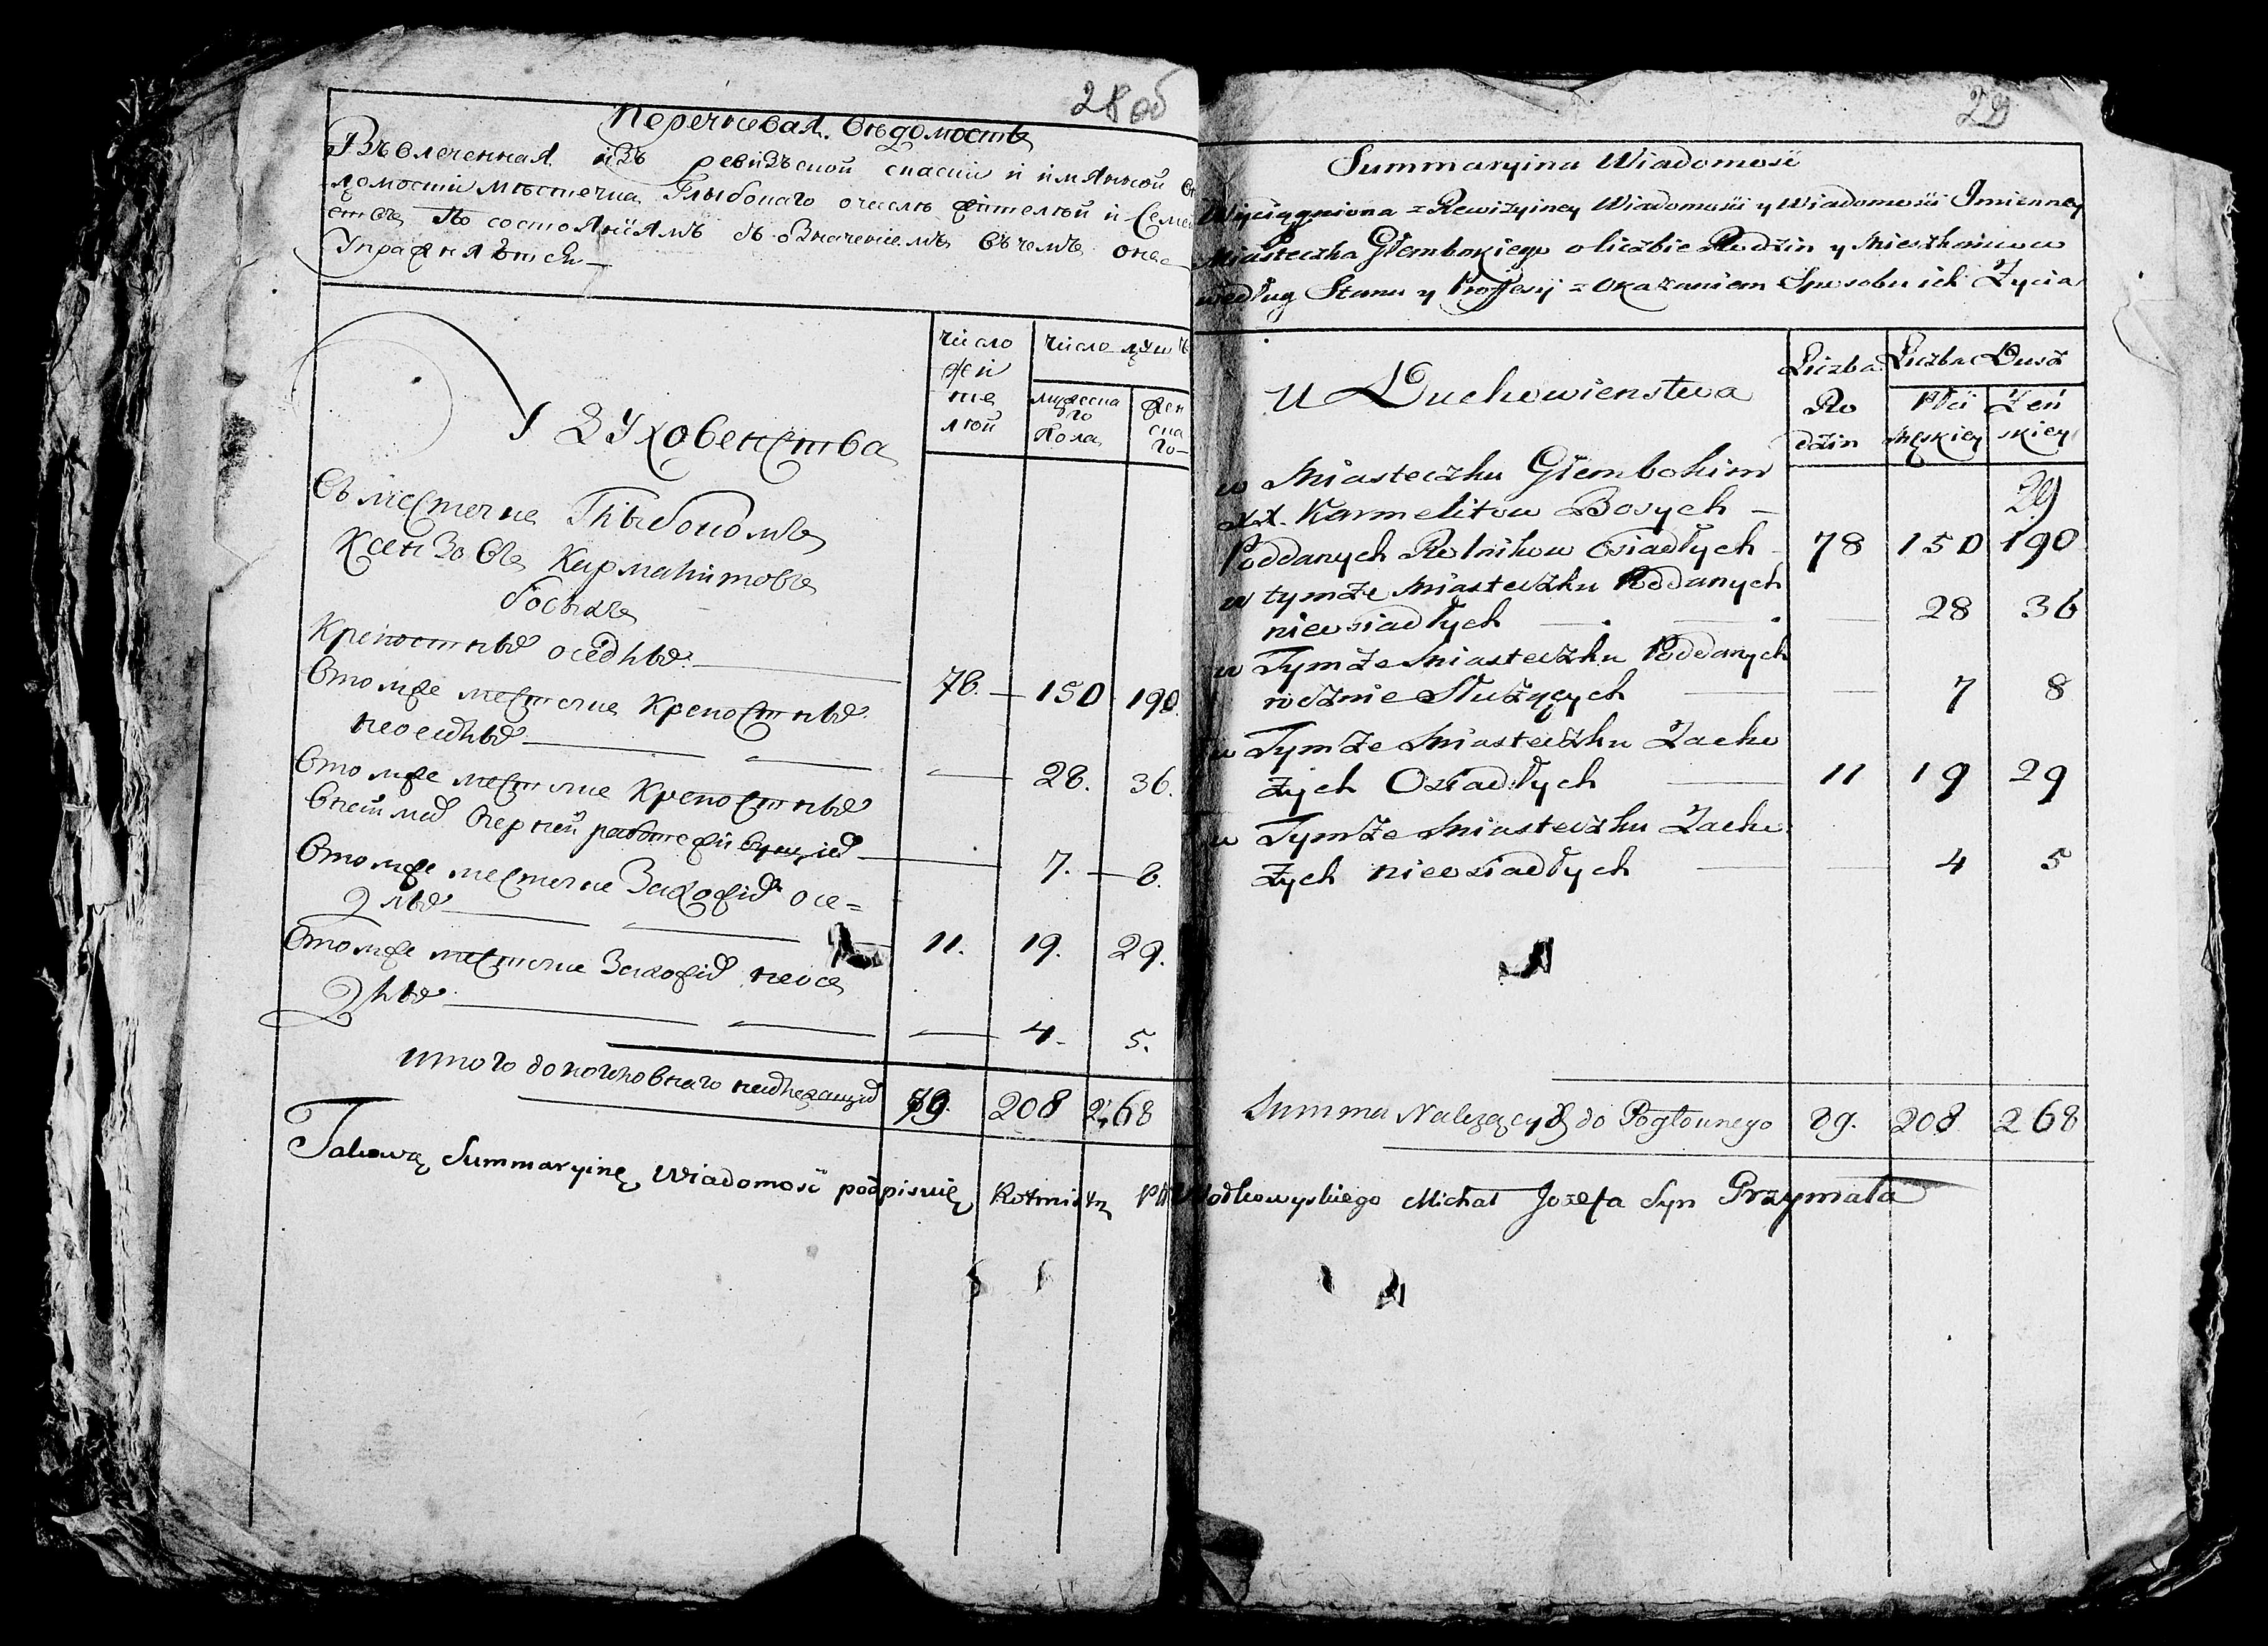 28 об
Перечневая. Вѣдомость
Звлеченная изъ ревизской сказки и имянной Вѣ
домости Мѣстечка Глыбокаго очисле жителей и Семей
ствъ По состоянїямъ съ означениемъ въ чемъ оне
Упражняются
Число
жи
те
лей
Число душъ
мужеска
го
Пола
жен
ска
го
У Духовенства
Въ местечке Глыбокомъ
Ксензовъ Кармалитовъ
босыхъ
Крепостныя оседлыя. 78. 150 190.
Втомже местечке Крепостныя
неоседлыя 28. 36.
Втомже местечке Крепостныя
7. 8.
Втомже местечке Захожия осе=
длыя 11. 19. 29.
Втомже местечке Захожия неосе
длыя 4. 5.
Итого до поголовнаго надлежащия 89. 208 268
29
Summaryina Wiadomość
Wyciągniona z Rewizyiney Wiadomości y Wiadomości Imienney
Miasteczka Głembokiego o liczbie Rodzin y Mieszkańcow
według Stanu y Proffesij z Okazaniem Sposobu ich Życia
U Duchowienstwa
Liczba
Ro
dzin
Liczba Dusz
Płci
Męskiey
Żeń
skiey
w Miasteczku Głembokim
XX. Karmelitow Bosych – 29
Poddanych Rolnikow Osiadłych 78 150 190
w tymże Miasteczku Poddanych
nieosiadłych 28 36
w Tymże Miasteczku Poddanych
rocznie Służących 7 8
w Tymże Miasteczku Zacho
żych Osiadłych 11 19 29
w Tymże Miasteczku Zacho
żych nieosiadłych 4 5
Summa Należących do Pogłownego 89. 208 268
Takową Summaryinę Wiadomość podpisuię Rotmistrz Ptu Wołkowyskiego Michał Jozefa Syn Przymała